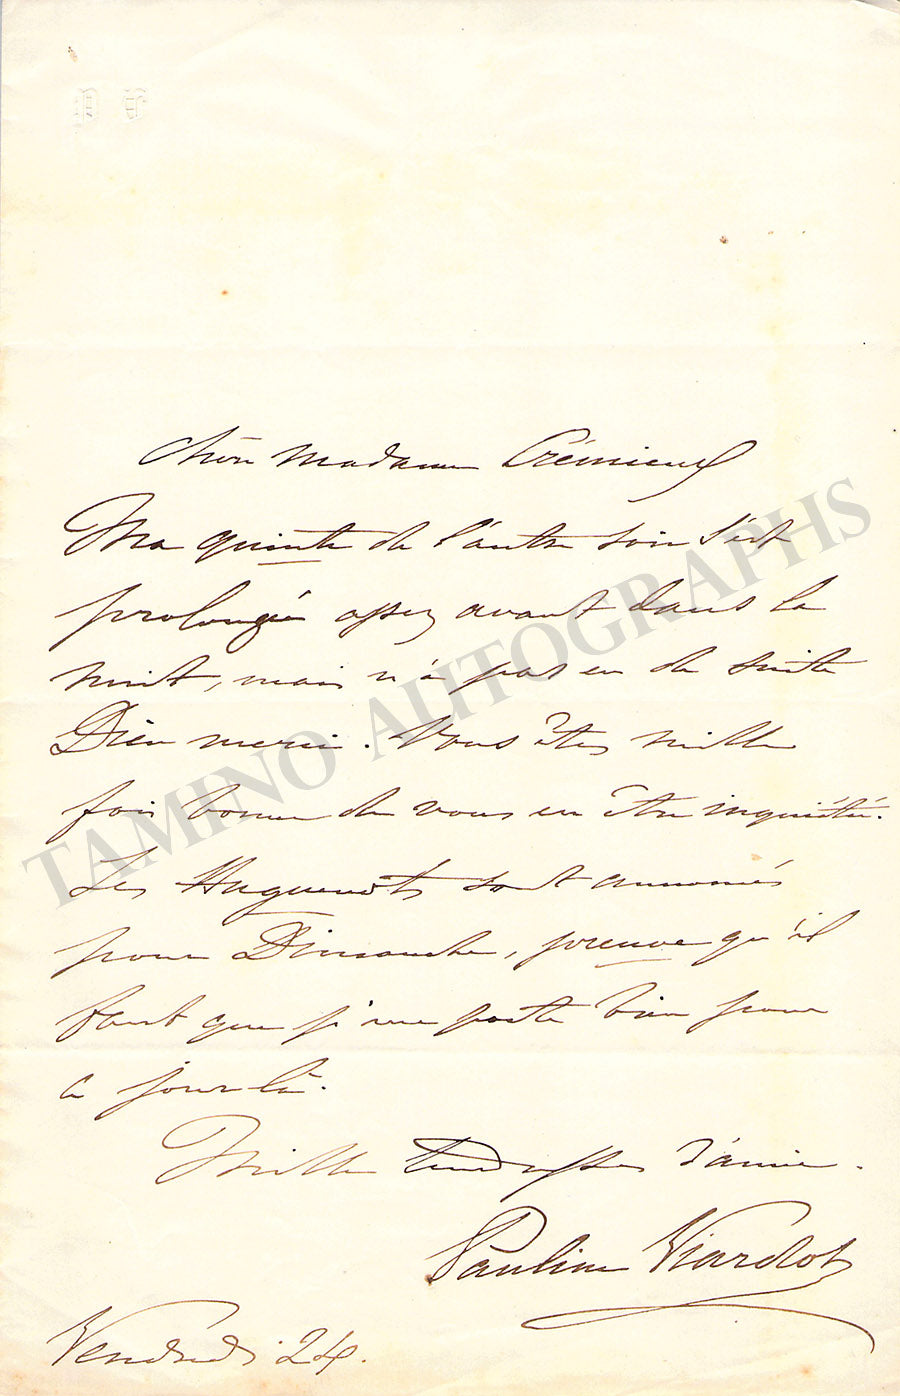 Chère Madame Crémieux
Ma quinte de l'autre soir s'est
prolongée assez avant dans la
nuit, mais n'a pas eu de suite
Dieu merci. Vous êtes mille
fois bonne de vous en être inquiétée.
Les Huguenots sont annoncés
pour Dimanche, preuve qu'il
faut que je me porte bien pour
ce jour là.
Mille tendresses d'amie.
Pauline Viardot
Vendredi 24.
TAMINO AUTOGRAPHS